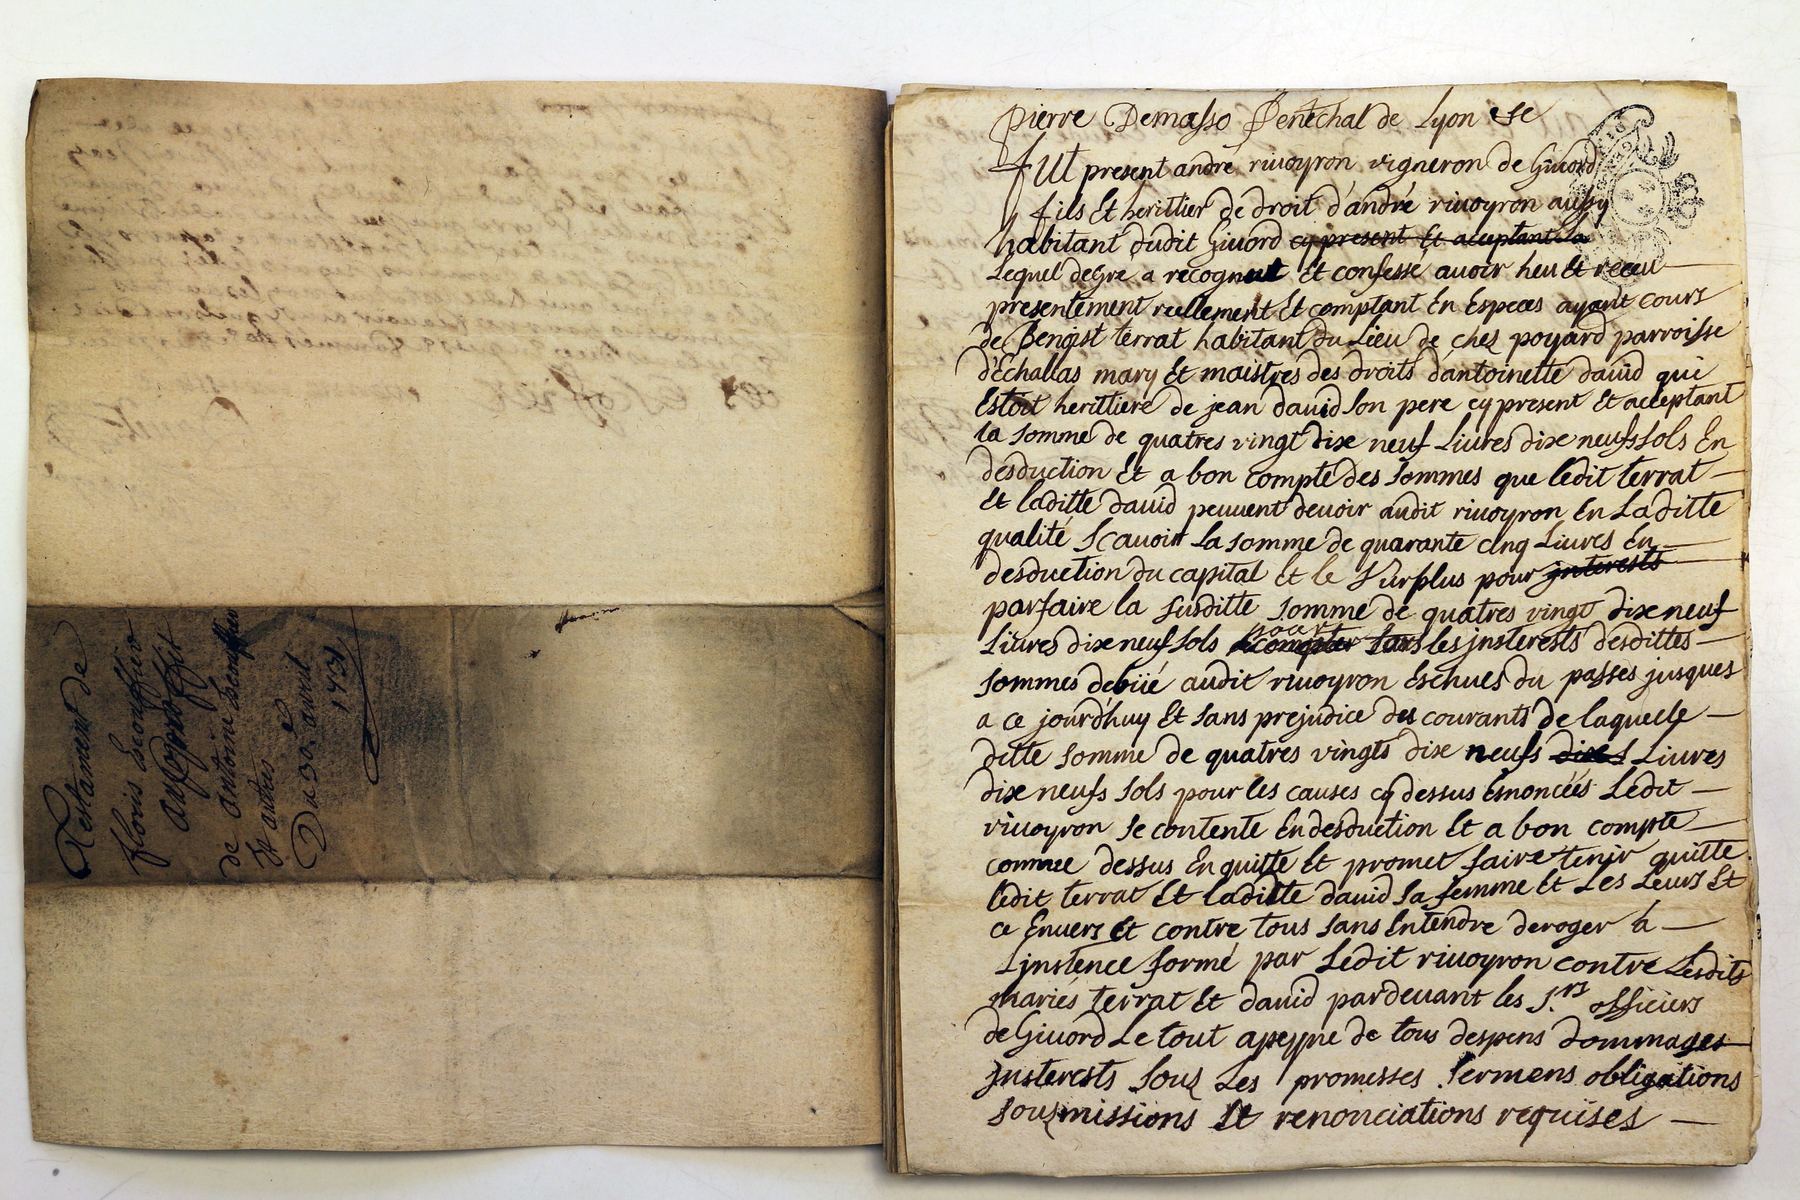 Testament de
floris Escoffier
au proffit
de antoine
et autres
Du 30e avril
1731
Pierre Demasso Senechal de Lyon ete
Fut present andré rivoyron vigneron de Givord
fils Et herittier de droit d'andré rivoyron aussy
habitant dudit Givord cy present Et acceptant la
Lequel de gré a recognut Et confessé avoir heu Et receu
presentement reellement Et comptant En Especes ayant cours
de Benoist terrat habitant du Lieu de chez poyard parroisse
d'Echallas mary Et maistres des droits d'antoinette david qui
Estoit herittiere de jean david son pere cy present Et acceptant
la somme de quatres vingt dixe neuf Livres dixe neufs sols En
desduction Et a bon compte des sommes que ledit terrat
Et laditte david peuvent devoir audit rivoyron En Laditte
qualité Scavoir La somme de quarante cinq Livres En
desduction du capital Et le Surplus pour jnterests
parfaire la susditte somme de quatres vingt dixe neuf
Livres dixe neuf sols pour les jnsterests desdittes
sommes debüé audit rivoyron Eschues du passes jusques
a ce jourd'huy Et sans prejudice des courants de laquelle
ditte somme de quatres vingts dixe neufs dixes Livres
dixe neufs sols pour les causes cy dessus Esnoncéés Ledit
rivoyron se contente En desduction Et a bon compte
comme dessus En quitte Et promet faire tenir quitte
ledit terrat Et laditte david sa femme Et Les Leurs Et
ce Envers Et contre tous sans Entendre deroger a
Ljnstence formé par Ledit rivoyron contre Lesdits
mariés terrat Et david pardevant les S.rs officiers
de Givord Le tout apeyne de tous despens dommages
jnsterests sous Les promesses sermens obligations
sousmissions Et renonciations requises